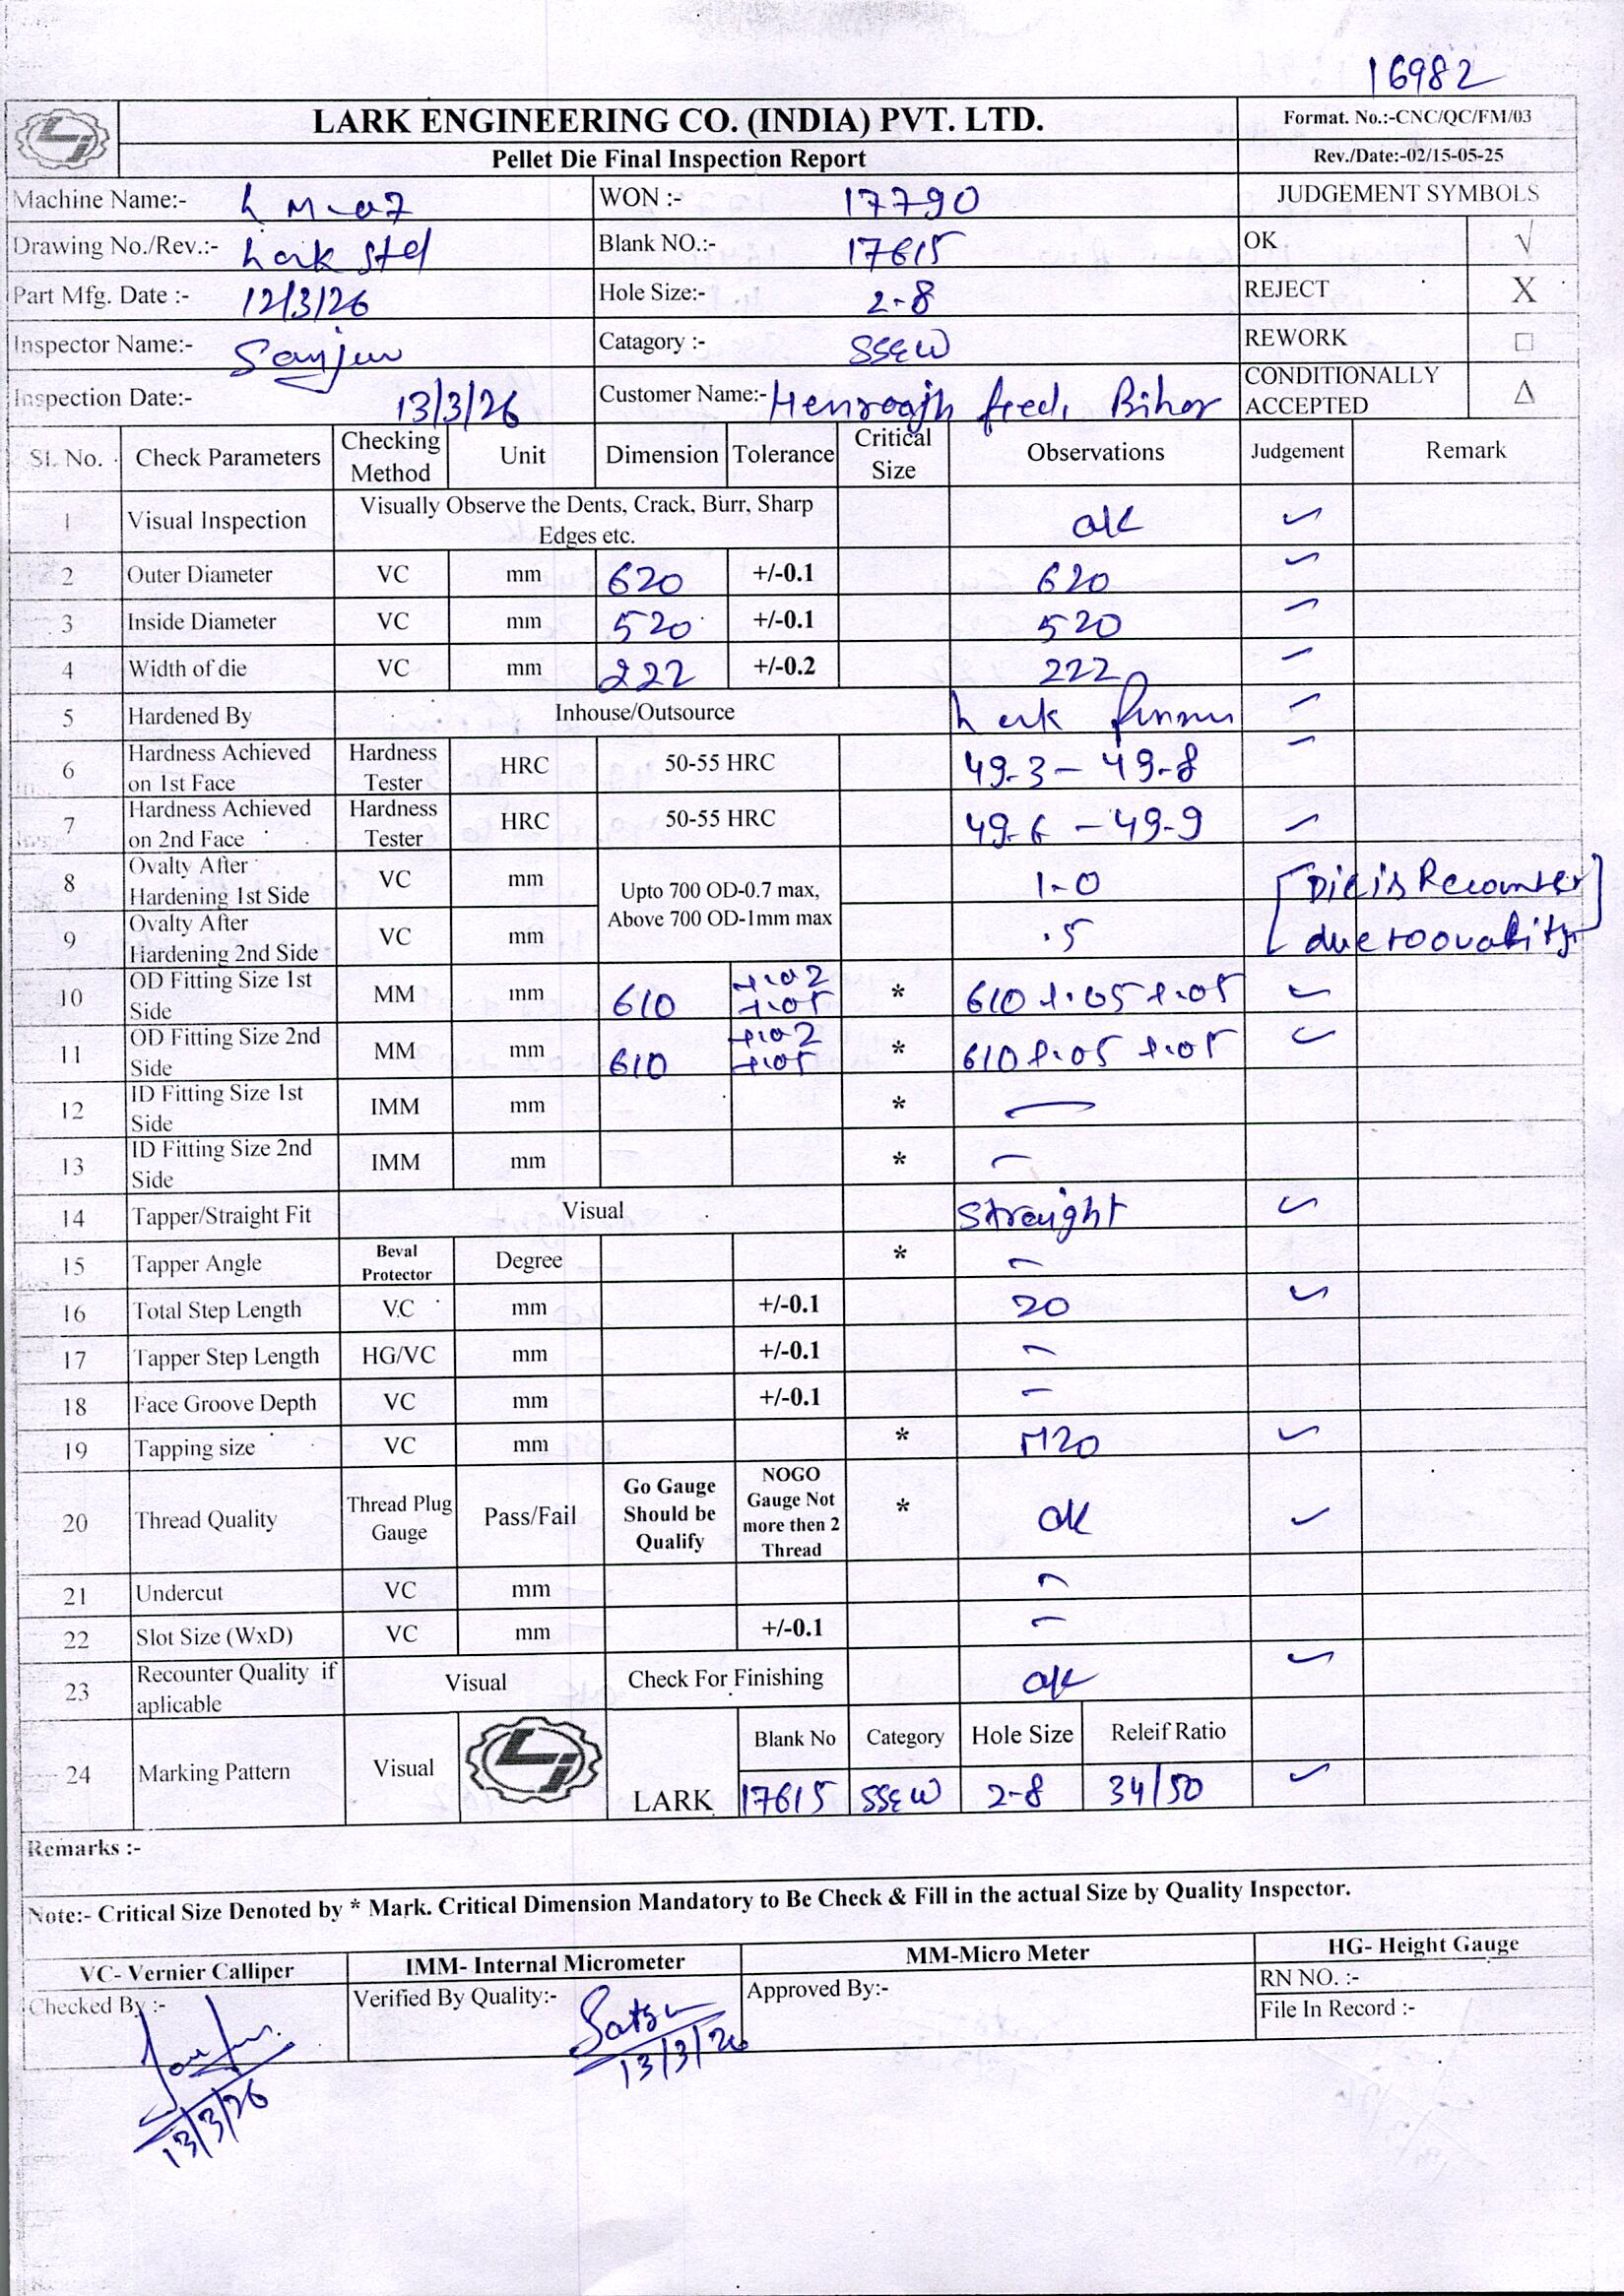 16982
LARK ENGINEERING CO. (INDIA) PVT. LTD. Format. No.:-CNC/QC/FM/03
Pellet Die Final Inspection Report Rev./Date:-02/15-05-25
Machine Name:- LM-07 WON :- 17790 JUDGEMENT SYMBOLS
Drawing No./Rev.:- Lark Std Blank NO.:- 17615 OK √
Part Mfg. Date :- 12/3/26 Hole Size:- 2-8 REJECT X
Inspector Name:- Sanjeev Catagory :- SSEW REWORK □
Inspection Date:- 13/3/26 Customer Name:- feed, Bihar CONDITIONALLY ACCEPTED Δ
SI. No. Check Parameters Checking Method Unit Dimension Tolerance Critical Size Observations Judgement Remark
1 Visual Inspection Visually Observe the Dents, Crack, Burr, Sharp Edges etc. ok ✓
2 Outer Diameter VC mm 620 +/-0.1 620 ✓
3 Inside Diameter VC mm 520 +/-0.1 520 ✓
4 Width of die VC mm 222 +/-0.2 222 ✓
5 Hardened By Inhouse/Outsource Lark ✓
6 Hardness Achieved on 1st Face Hardness Tester HRC 50-55 HRC 49.3 - 49.8 ✓
7 Hardness Achieved on 2nd Face Hardness Tester HRC 50-55 HRC 49.6 - 49.9 ✓
8 Ovalty After Hardening 1st Side VC mm Upto 700 OD-0.7 max, Above 700 OD-1mm max 1.0 Die is Recounter
9 Ovalty After Hardening 2nd Side VC mm .5 due to ovality
10 OD Fitting Size 1st Side MM mm 610 +.02 +.05 * 610 +.05 +.05 ✓
11 OD Fitting Size 2nd Side MM mm 610 +.02 +.05 * 610 +.05 +.05 ✓
12 ID Fitting Size 1st Side IMM mm * —
13 ID Fitting Size 2nd Side IMM mm * —
14 Tapper/Straight Fit Visual Straight ✓
15 Tapper Angle Beval Protector Degree * —
16 Total Step Length VC mm +/-0.1 20 ✓
17 Tapper Step Length HG/VC mm +/-0.1 —
18 Face Groove Depth VC mm +/-0.1 —
19 Tapping size VC mm * M20 ✓
20 Thread Quality Thread Plug Gauge Pass/Fail Go Gauge Should be Qualify NOGO Gauge Not more then 2 Thread * ok ✓
21 Undercut VC mm —
22 Slot Size (WxD) VC mm +/-0.1 —
23 Recounter Quality if aplicable Visual Check For Finishing ok ✓
24 Marking Pattern Visual LARK Blank No Category Hole Size Releif Ratio
17615 SSEW 2-8 34/50 ✓
Remarks :-
Note:- Critical Size Denoted by * Mark. Critical Dimension Mandatory to Be Check & Fill in the actual Size by Quality Inspector.
VC- Vernier Calliper IMM- Internal Micrometer MM-Micro Meter HG- Height Gauge
Checked By :- Verified By Quality:- Approved By:- RN NO. :-
File In Record :-
13/3/26 13/3/26